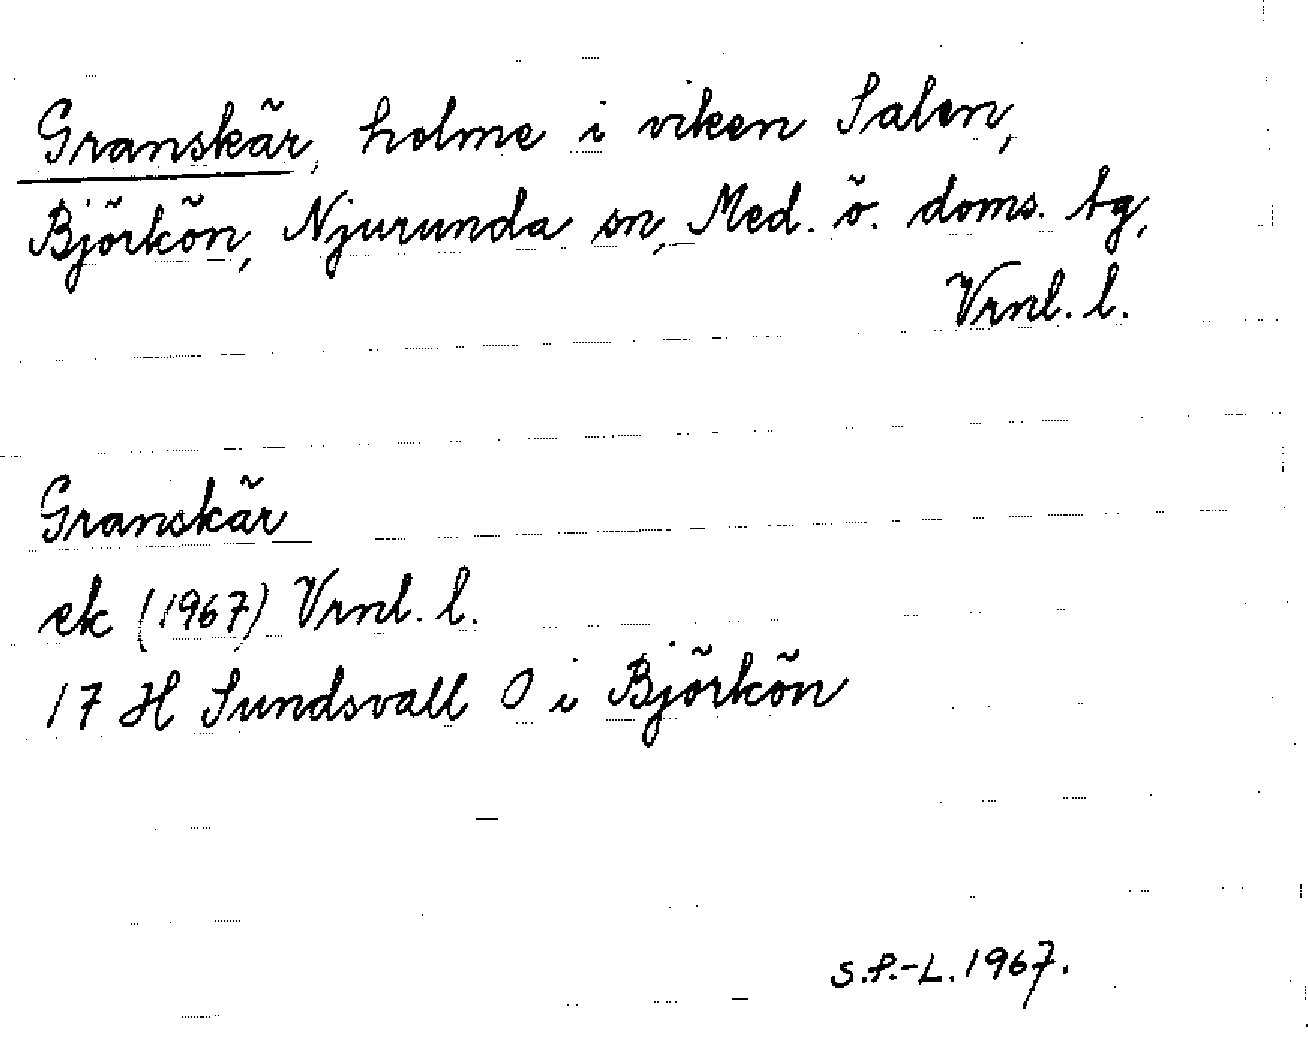 Granskär, holme i viken Salen,
Björkön, Njurunda sn, Med. ö. doms. tg,
Vrnl. l.
Granskär
ek (1967) Vrnl. l.
17 H Sundsvall O i Björkön
S.P.-L. 1967.